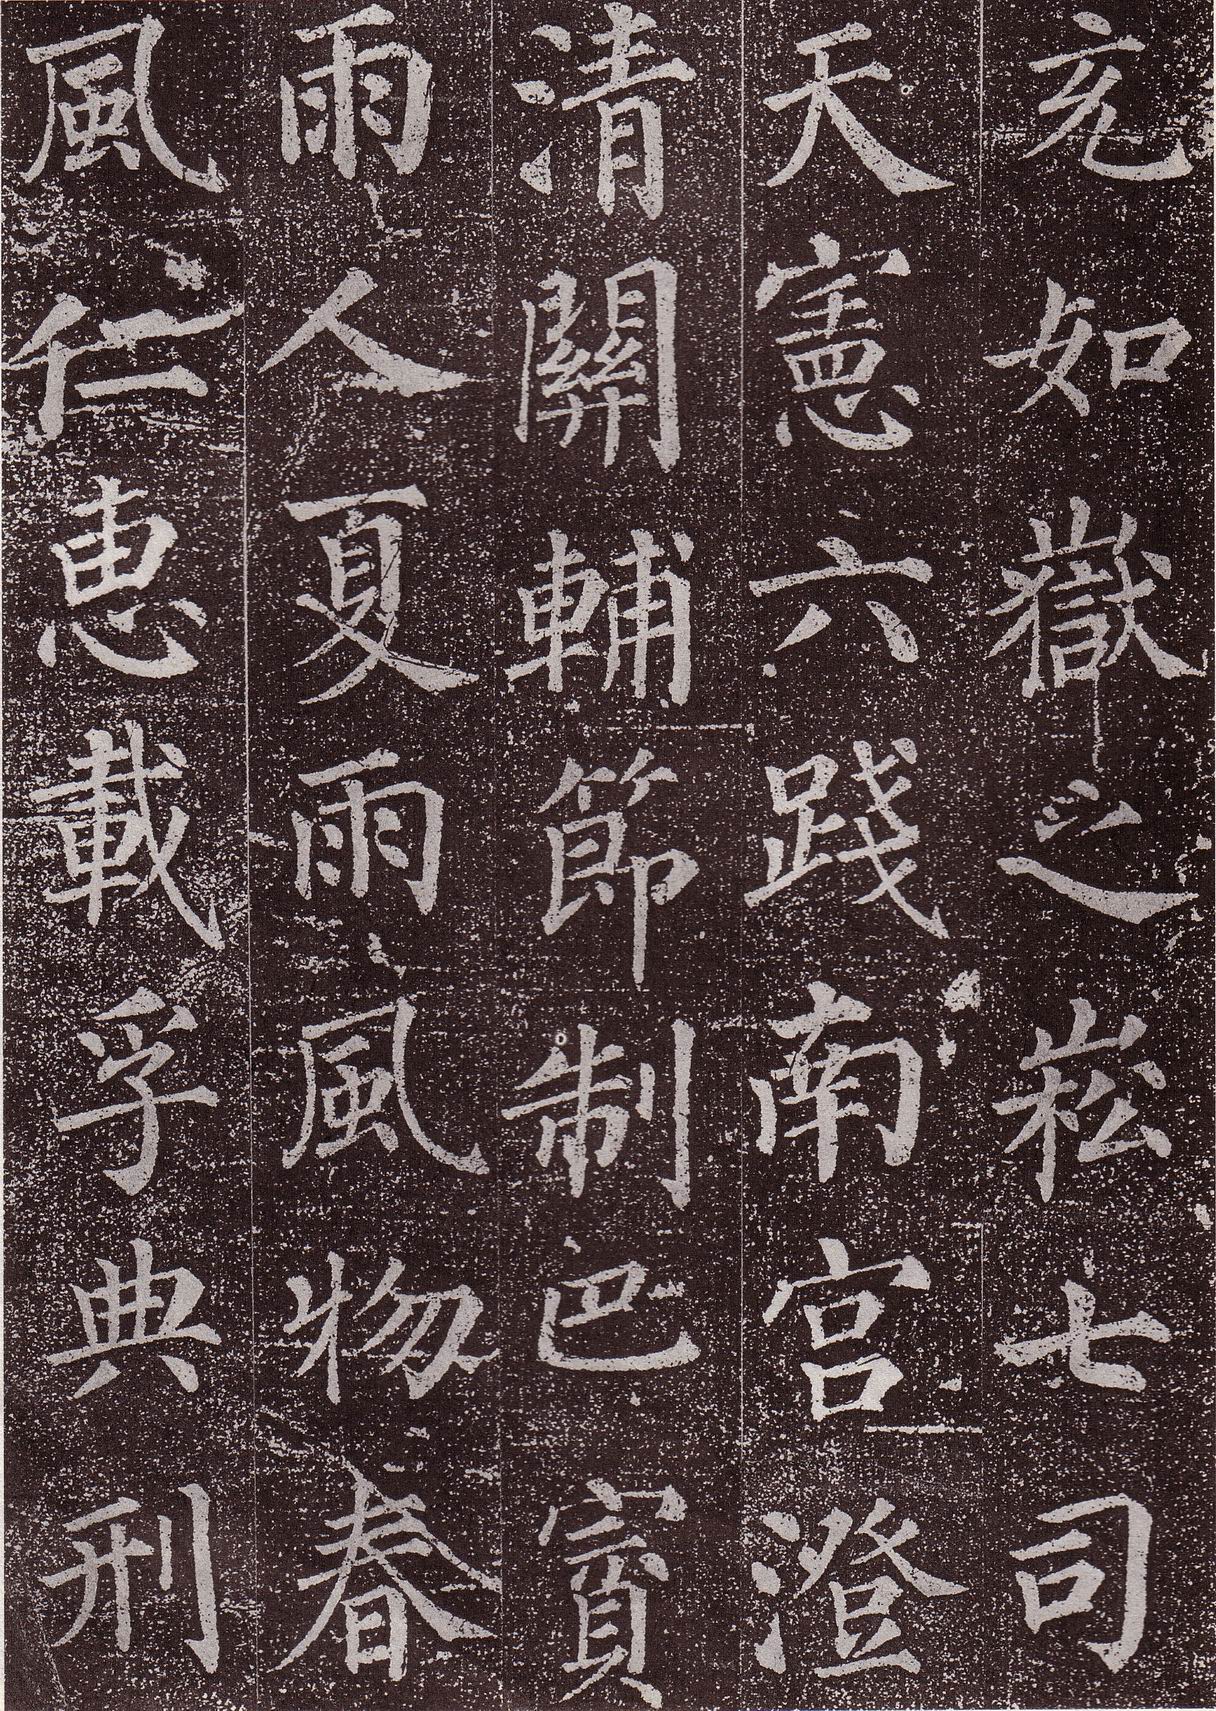 兗如嶽之崧七司
天憲六踐南宮澄
清關輔節制巴賓
雨人夏雨風物春
風仁惠載孚典刑